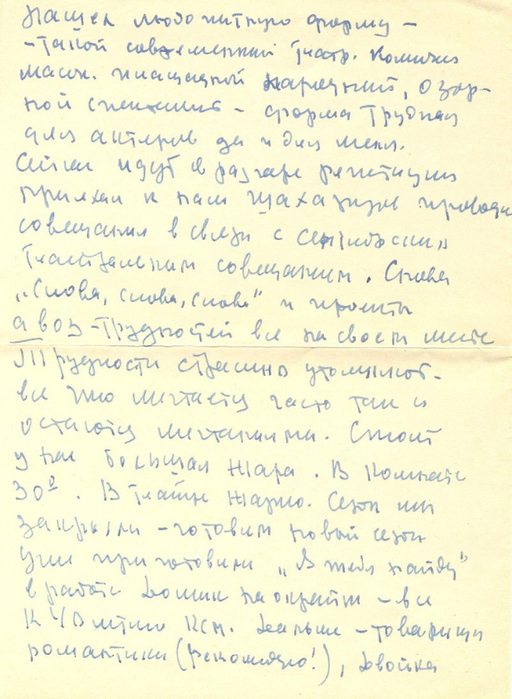 Нашел любопытную форму –
– такой современный театр. Комизм
масок. площадной народный, озор-
ной – форма трудная
для актеров да и для меня.
Сейчас идут в разгаре репетиции
приехал к нам Шах-Азизов проводи
совещания в связи с сентябрьским
театральным совещанием. Снова
„слова, слова, слова" и проекты
а воз – трудностей все на своем месте
Трудности страшно утомляют –
все что мечтается часто так и
остаются мечтаниями. Стоит
у нас большая жара. В комнате
30º. В театре жарко. Сезон мы
закрыли – готовим новый сезон
уже приготовили „Я тебя найду"
в работе Домик на окраине – все
к ХV летию Ксм. Дальше – товарищи
романтики (рекомендую!), двойка